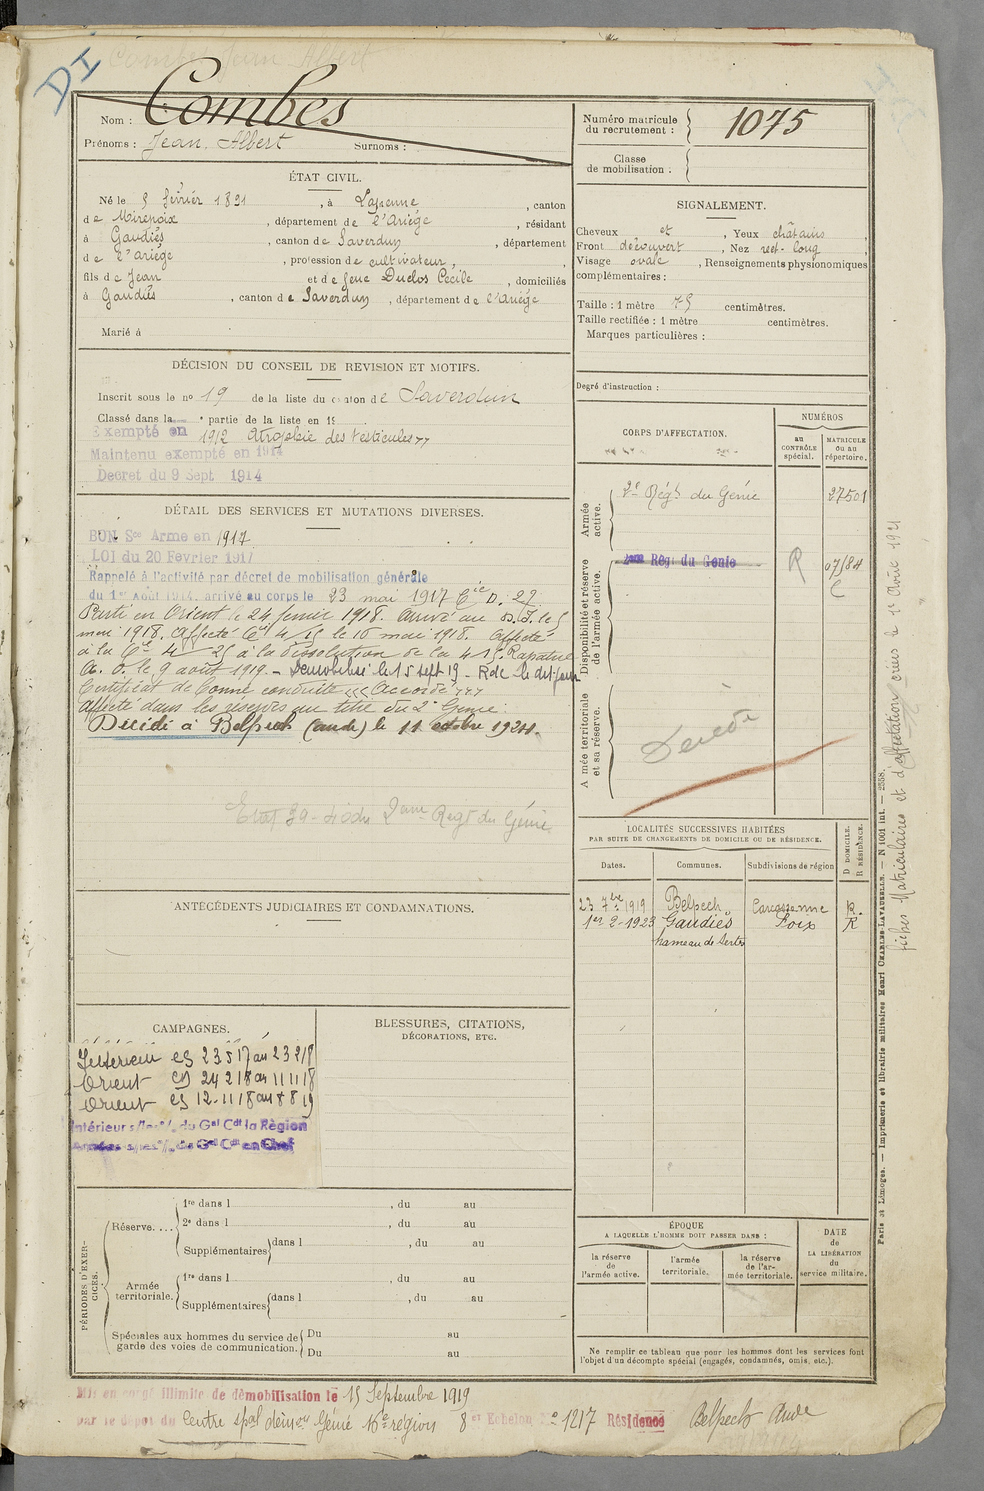 DI
Combes Jean Albert
Nom : Combes
Prénoms : Jean Albert Surnoms :
Numéro matricule du recrutement : 1075
Classe de mobilisation :
ÉTAT CIVIL.
Né le 5 février 1891, à Lapenne, canton
de Mirepoix, département de l'Ariège, résidant
à Gaudiès, canton de Saverdun, département
de l'Ariège, profession de cultivateur,
fils de Jean et de feue Duclos Cécile, domiciliés
à Gaudiès, canton de Saverdun, département de l'Ariège
Marié à
SIGNALEMENT.
Cheveux et, Yeux châtains
Front découvert, Nez rect. long
Visage ovale, Renseignements physionomiques
complémentaires :
Taille : 1 mètre 75 centimètres.
Taille rectifiée : 1 mètre centimètres.
Marques particulières :
Degré d'instruction :
DÉCISION DU CONSEIL DE REVISION ET MOTIFS.
Inscrit sous le no 19 de la liste du canton de Saverdun
Classé dans la e partie de la liste en 19
Exempté en 1912 Atrophie des testicules
Maintenu exempté en 1914
Decret du 9 Sept 1914
DÉTAIL DES SERVICES ET MUTATIONS DIVERSES.
BON Sce Arme en 1917
LOI du 20 Février 1917
Rappelé à l'activité par décret de mobilisation générale
du 1er Août 1914, arrivé au corps le 23 mai 1917 Cie D. 27
Parti en Orient le 24 fevrier 1918. Arrivé au D.I. le 5
mai 1918. Affecté Cie 4/15 le 10 mai 1918. Affecté
à la Cie 4/25 à la dissolution de la 4/15. Rapatrié
A. O. le 9 août 1919 - Demobilisé le 15 sept 19 -
Certificat de bonne conduite "Accordé"
Affecté dans les reserves au titre du 2e Génie.
Décédé à Belpech (aude) le 11 octobre 1924.
Etat 2eme Regt du Génie
CORPS D'AFFECTATION.
NUMÉROS
au CONTRÔLE spécial.
MATRICULE ou au répertoire.
Armée active.
2e Régt du Génie 27501
Disponibilité et réserve de l'armée active.
2eme Régt du Genie R 07/84
C
Armée territoriale et sa réserve.
Décédé
LOCALITÉS SUCCESSIVES HABITÉES
PAR SUITE DE CHANGEMENTS DE DOMICILE OU DE RÉSIDENCE.
Dates. Communes. Subdivisions de région
D DOMICILE. R RÉSIDENCE.
23 7bre 1919 Belpech Carcassonne R.
1er 2-1923 Gaudiès Foix R
hameau de
ANTÉCÉDENTS JUDICIAIRES ET CONDAMNATIONS.
CAMPAGNES.
Intérieur CS 23 5 17 au 23 2 18
Orient CS 24 2 18 au 11 11 18
Orient CS 12-11 18 au 8 8 19
Intérieur s/les o/ du Gal Cdt la Règion
Armées s/les o/ du Gal Cdt en Chef
BLESSURES, CITATIONS,
DÉCORATIONS, ETC.
PÉRIODES D'EXERCICES.
Réserve....
1re dans l , du au
2e dans l , du au
Supplémentaires dans l , du au
Armée territoriale.
1re dans l , du au
Supplémentaires dans l , du au
Spéciales aux hommes du service de garde des voies de communication.
Du au
Du au
ÉPOQUE
A LAQUELLE L'HOMME DOIT PASSER DANS :
la réserve de l'armée active.
l'armée territoriale.
la réserve de l'armée territoriale.
DATE de LA LIBÉRATION du service militaire.
Ne remplir ce tableau que pour les hommes dont les services font
l'objet d'un décompte spécial (engagés, condamnés, omis, etc.).
Paris et Limoges. — Imprimerie et librairie militaires Henri CHARLES-LAVAUZELLE. — N 1001 int. — 2558.
fiches Matriculaires et d'affectation créées le 1er Août 1921
Mis en congé illimité de démobilisation le 15 Septembre 1919
par le dépôt du Centre spal démou Génie 16e région 8e Echelon No 1217 Résidence Belpech Aude